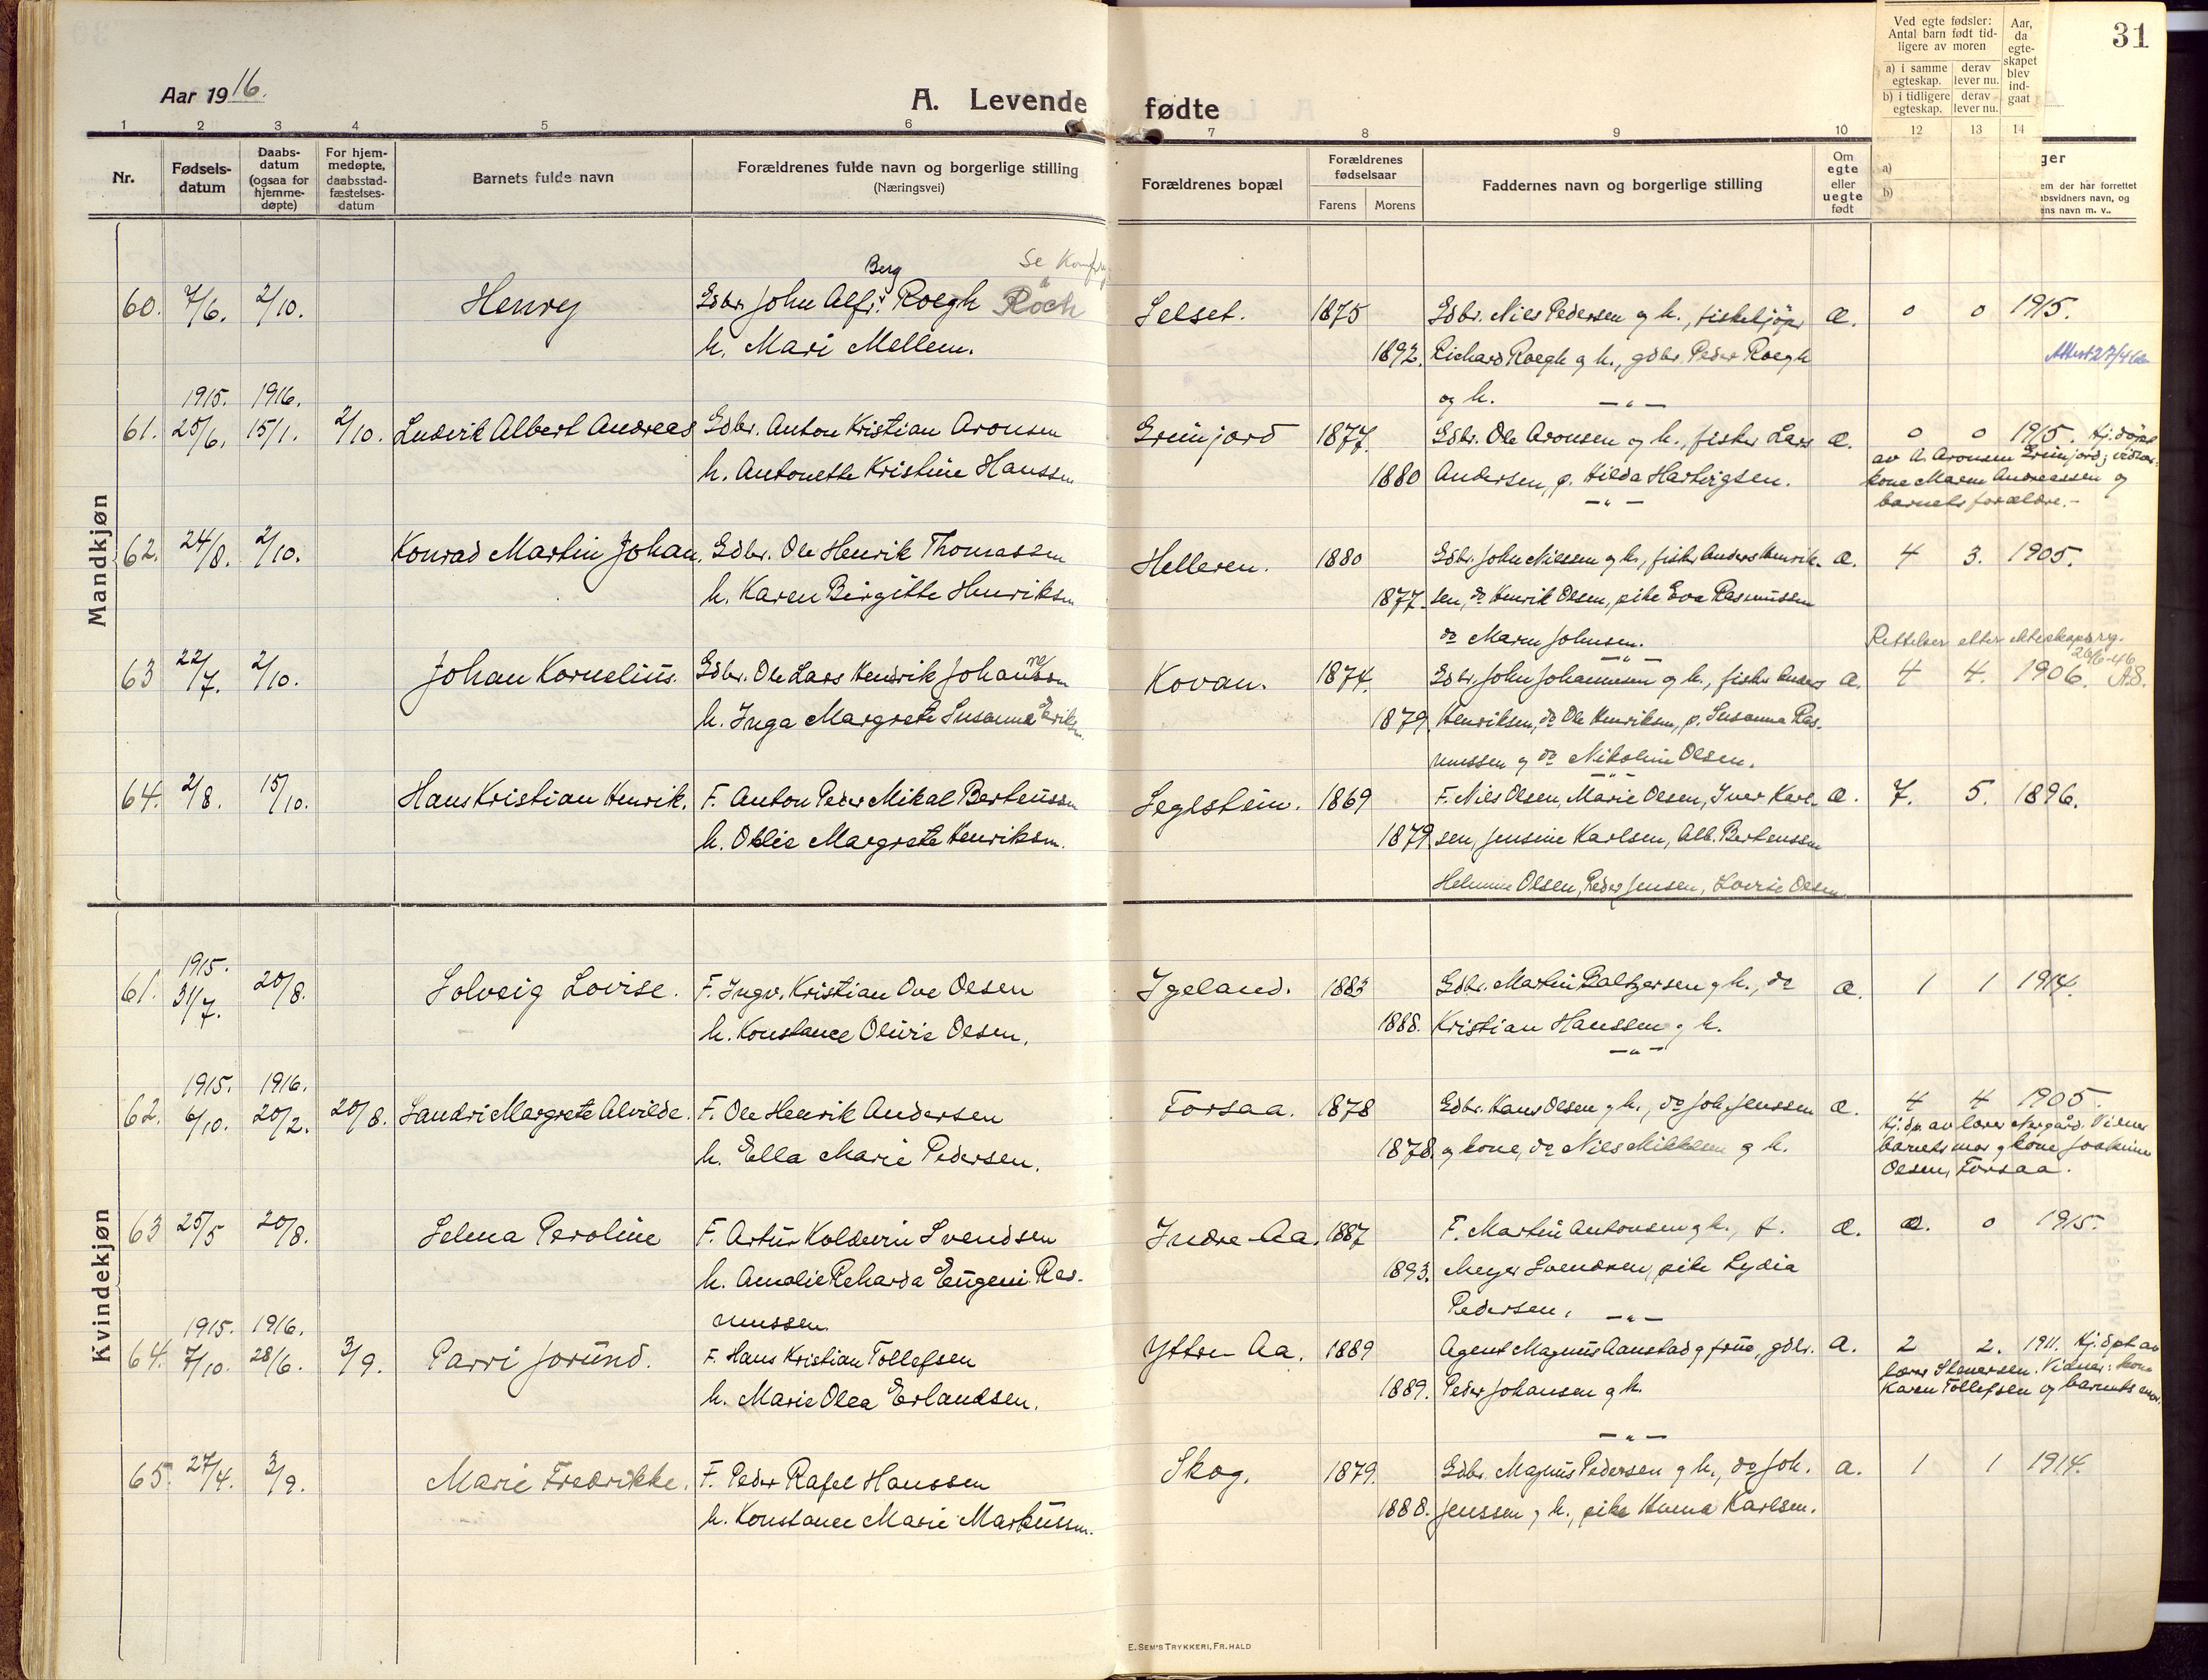 31
Aar 1916.
A. Levende fødte
Ved egte fødsler: Antal barn født tidligere av moren
a) i samme egteskap. derav lever nu.
b) i tidligere egteskap. derav lever nu.
Aar, da egteskapet blev indgaat
1 2 3 4 5 6 7 8 9 10 12 13 14
Nr.
Fødselsdatum
Daabsdatum (ogsaa for hjemmedøpte)
For hjemmedøpte, daabsstadfæstelsesdatum
Barnets fulde navn
Forældrenes fulde navn og borgerlige stilling (Næringsvei)
Forældrenes bopæl
Forældrenes fødselsaar
Farens Morens
Faddernes navn og borgerlige stilling
Om egte eller uegte født
a)
b)
ger
em der har forrettet
bsvidners navn, og
ens navn m. v..
Mandkjøn
Berg Se
60. 7/6. 2/10. Henry Gdbr. John Alfr. Roegh Röch Selset. 1875 Gdbr. Nils Pedersen og h., fiskekjöper æ. 0 0 1915.
h. Mari Mellem. 1892. Richard Roegh og h., gdbr. Peder Roegh
og h. — „ —
1915. 1916.
61. 25/6. 15/1. 2/10. Ludvik Albert Andreas Gdbr. Anton Kristian Aronsen Grunfjord 1877. Gdbr. Ole Aronsen og h., fisker Lars æ. 0 0 1915. Hj.döpt
av A. Aronsen Grunfjord; vidner:
h. Antonette Kristine Hanssen 1880 Andersen, p. Hilda Hartvigsen. kone Maren Andreassen og
— „ — barnets forældre.-
62. 24/8. 2/10. Konrad Martin Johan. Gdbr. Ole Henrik Thomassen Helleren. 1880 Gdbr. John Nilssen og h., fisker Anders Henrik- æ. 4 3. 1905.
h. Karen Birgitte Henriksen 1877. sen, do Henrik Olsen, pike Eva Rasmussen
do Maren Johnsen. Rettelser etter ekteskapsreg.
— „ — 26/6-46
63 22/7. 2/10. Johan Kornelius. Gdbr. Ole Lars Hendrik Johannsen Kovan. 1874. Gdbr. John Johannesen og h., fisker Anders æ. 4 4. 1906. A.S.
h. Inga Margrete Susanna Eriksen. 1879. Henriksen, do Ole Henriksen, p. Susanna Ras-
mussen og do Nikoline Olsen.
— „ —
64. 2/8. 15/10. Hans Kristian Henrik. F. Anton Peder Mikal Berteussen Seglstein. 1869 F. Nils Olsen, Marie Olsen, Iver Karl- æ. 7. 5. 1896.
h. Otelie Margrete Henriksen. 1879. sen, Jensine Karlsen, Alb. Berteussen
Helmine Olsen, Peder Jensen, Lovise Olsen.
Kvindekjøn
1915.
61. 31/7. 20/8. Solveig Lovise. F. Ingv. Kristian Ove Olsen Igeland. 1883 Gdbr. Martin Baltzersen og h., do æ. 1 1 1914.
h. Konstance Oluvie Olsen. 1888. Kristian Hanssen og h.
— „ —
1915. 1916.
62. 6/10. 20/2. 20/8. Sandri Margrete Alvilde. F. Ole Henrik Andersen Forsaa. 1878 Gdbr. Hans Olsen og h., do Joh. Jenssen æ. 4 4 1905.
Hj.dp. av lærer Nergård. Vidner
h. Ella Marie Pedersen. 1878. og kone, do Nils Mikkelsen og h. barnets mor og kone Joakime
Olsen, Forsaa.
63 25/5 20/8. Selma Peroline F. Artur Koldevin Svendsen Indre-Aa. 1887 F. Martin Antonsen og h., f. æ. 0. 0 1915.
h. Amalie Reharda Eugeni Ras- 1893. Meyer Svendsen, pike Lydia
mussen. Pedersen. — „ —
1915. 1916.
64. 7/10. 28/6. 3/9. Parri Jorund. F. Hans Kristian Tollefsen Yttre-Aa. 1889 Agent Magnus Aanstad og frue, gdbr. æ. 2 2. 1911. Hj.dpt av
lærer Stenersen. Vidner: kone
h. Marie Olea Erlandsen. 1889. Peder Johansen og h. Karen Tollefsen og barnets mor.
— „ —
65. 27/4. 3/9. Marie Fredrikke. F. Peder Rafel Hanssen Skog. 1879. Gdbr. Magnus Pedersen og h., do Joh. æ. 1 1 1914.
h. Konstance Marie Markussen. 1888. Jenssen og h., pike Huma Karlsen.
E. SEM'S TRYKKERI, FR. HALD